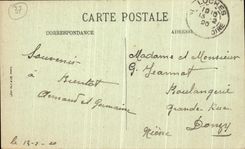 37
CARTE POSTALE
CORRESPONDANCE
ADRESSE
Souvenir
à
Bientôt
Armand et Germaine
le 12-2-20
Madame et Monsieur
G. Jeannot
Boulangerie
Grande Rue
Donzy
Nièvre